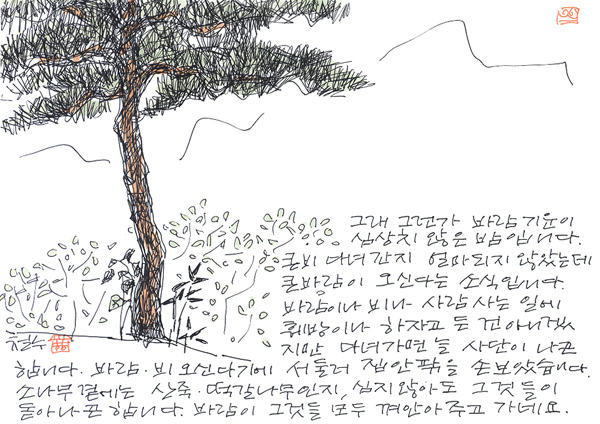 그래 그런가 바람기운이
심상치 않은 밤입니다.
큰비 다녀간지 얼마되지 않았는데
큰바람이 오신다는 소식입니다.
바람이나 비나 사람 사는 일에
훼방이나 하자고 든 건 아니겠
지만 다녀가면 늘 사단이 나곤
합니다. 바람·비 오신다기에 서둘러 집안팎을 손보았습니다.
소나무 곁에는 산죽·떡갈나무인지, 심지않아도 그것들이
돋아나곤 합니다. 바람이 그것들 모두 껴안아주고 가네요.
철수